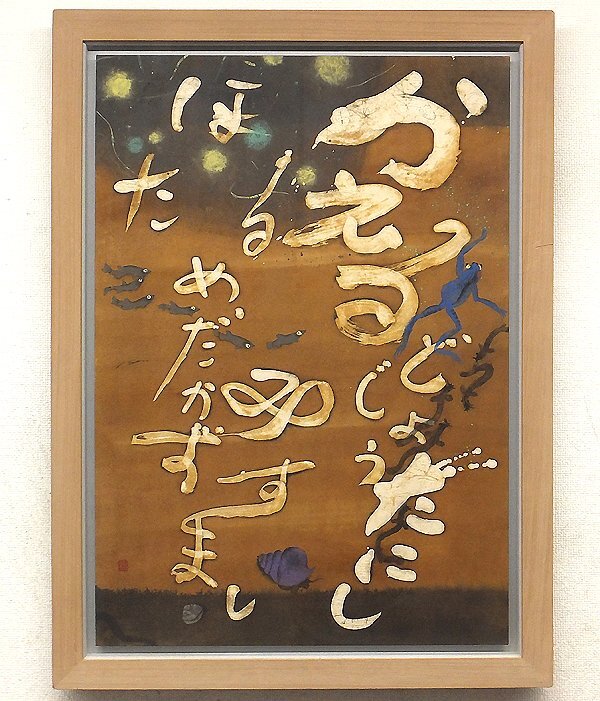 かえる
どじょう
たにし
ほたる
めだか
みずすまし